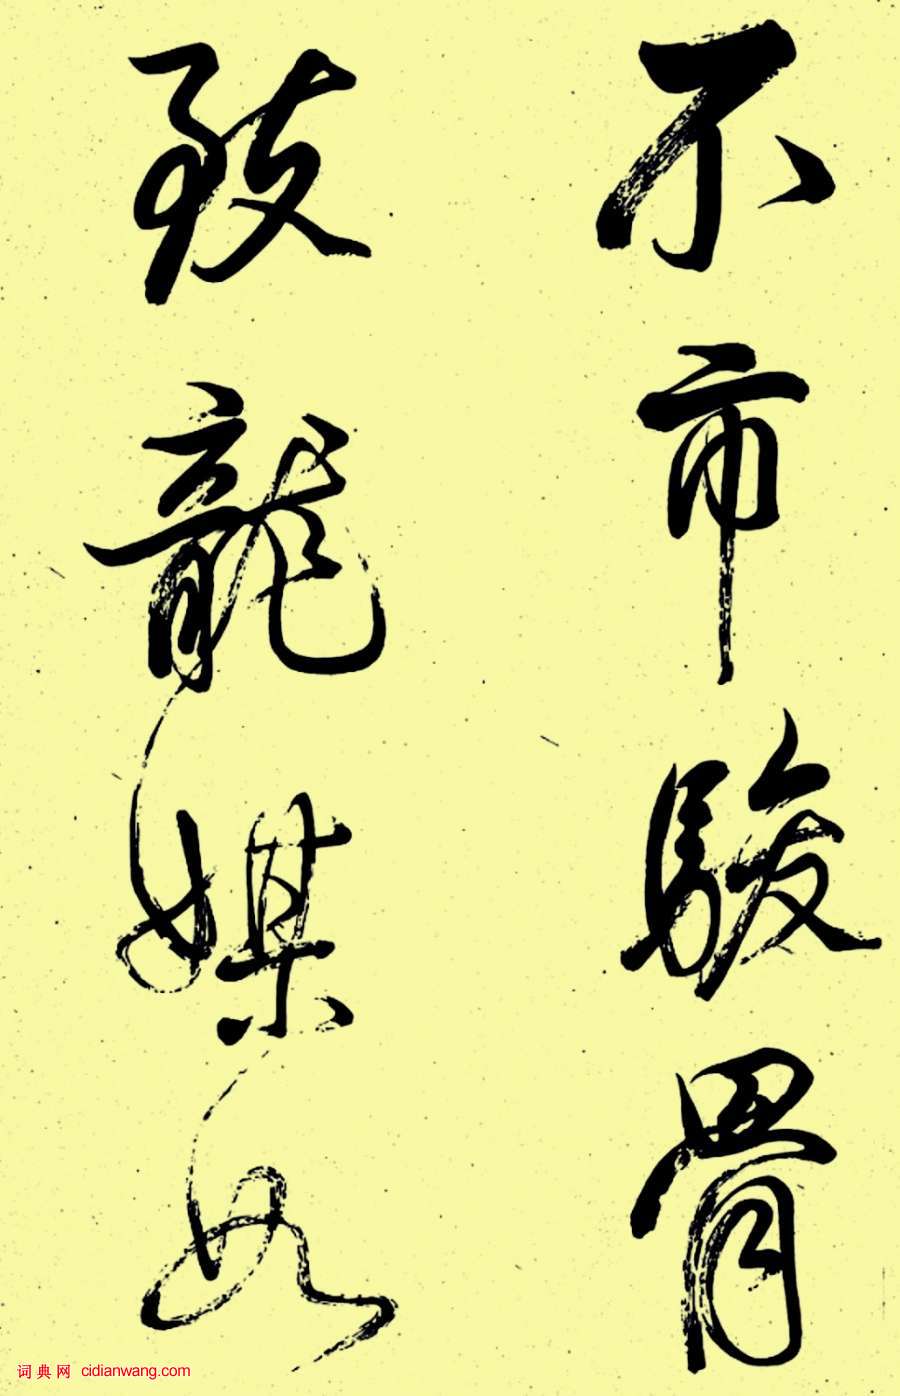 不市駿骨
致龍媒如
词典网 cidianwang.com